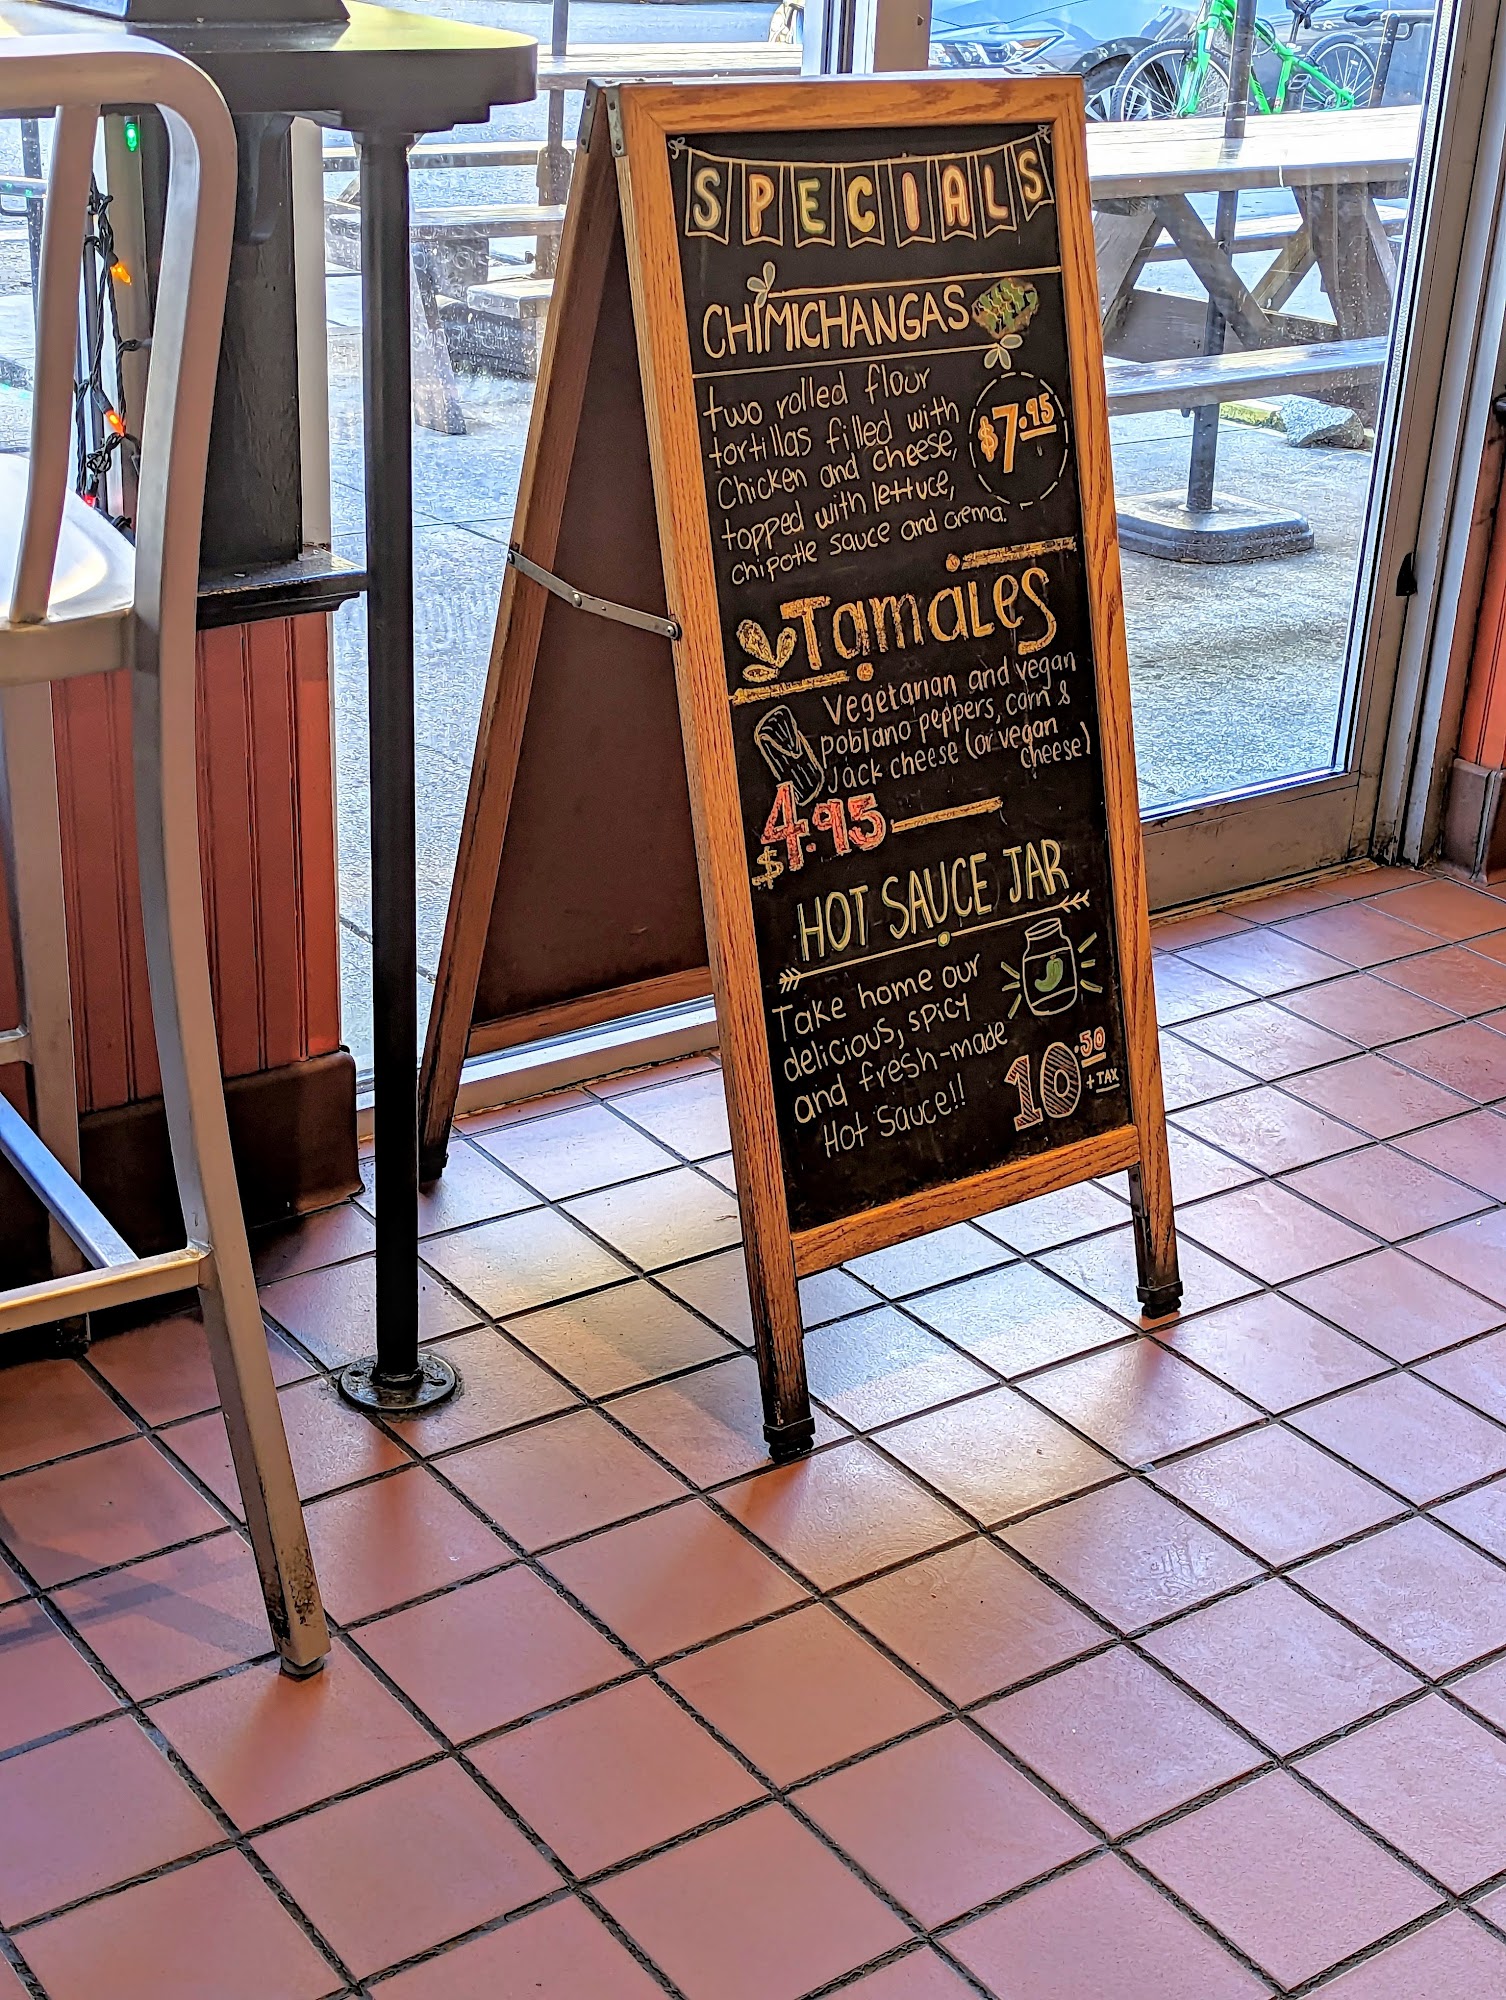 SPECIALS
CHIMICHANGAS
two rolled flour
tortillas filled with
Chicken and cheese,
topped with lettuce,
chipotle sauce and crema.
$7.95
Tamales
Vegetarian and vegan
poblano peppers, corn &
Jack cheese (or vegan
cheese)
$4.95
HOT SAUCE JAR
Take home our
delicious, spicy
and fresh-made
Hot Sauce!!
10.50
+ TAX